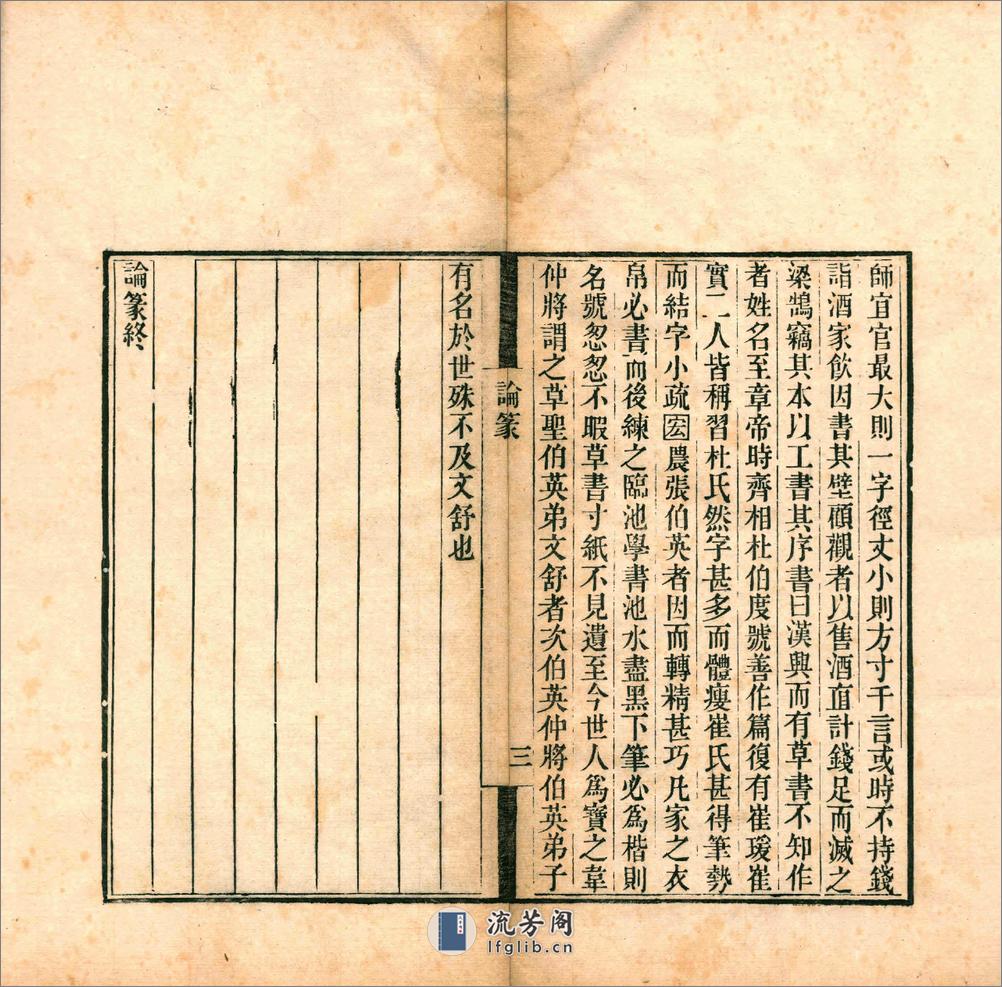 師宜官最大則一字徑丈小則方寸千言或時不持錢
詣酒家飲因書其壁顧觀者以售酒直計錢足而滅之
梁鵠竊其本以工書其序書曰漢興而有草書不知作
者姓名至章帝時齊相杜伯度號善作篇復有崔瑗崔
實二人皆稱習杜氏然字甚多而體瘦崔氏甚得筆勢
而結字小疏宏農張伯英者因而轉精甚巧凡家之衣
帛必書而後練之臨池學書池水盡黑下筆必爲楷則
名號怱怱不暇草書寸紙不見遺至今世人爲寶之韋
仲將謂之草聖伯英弟文舒者次伯英仲將伯英弟子
論篆
三
有名於世殊不及文舒也
論篆終
流芳阁
lfglib.cn